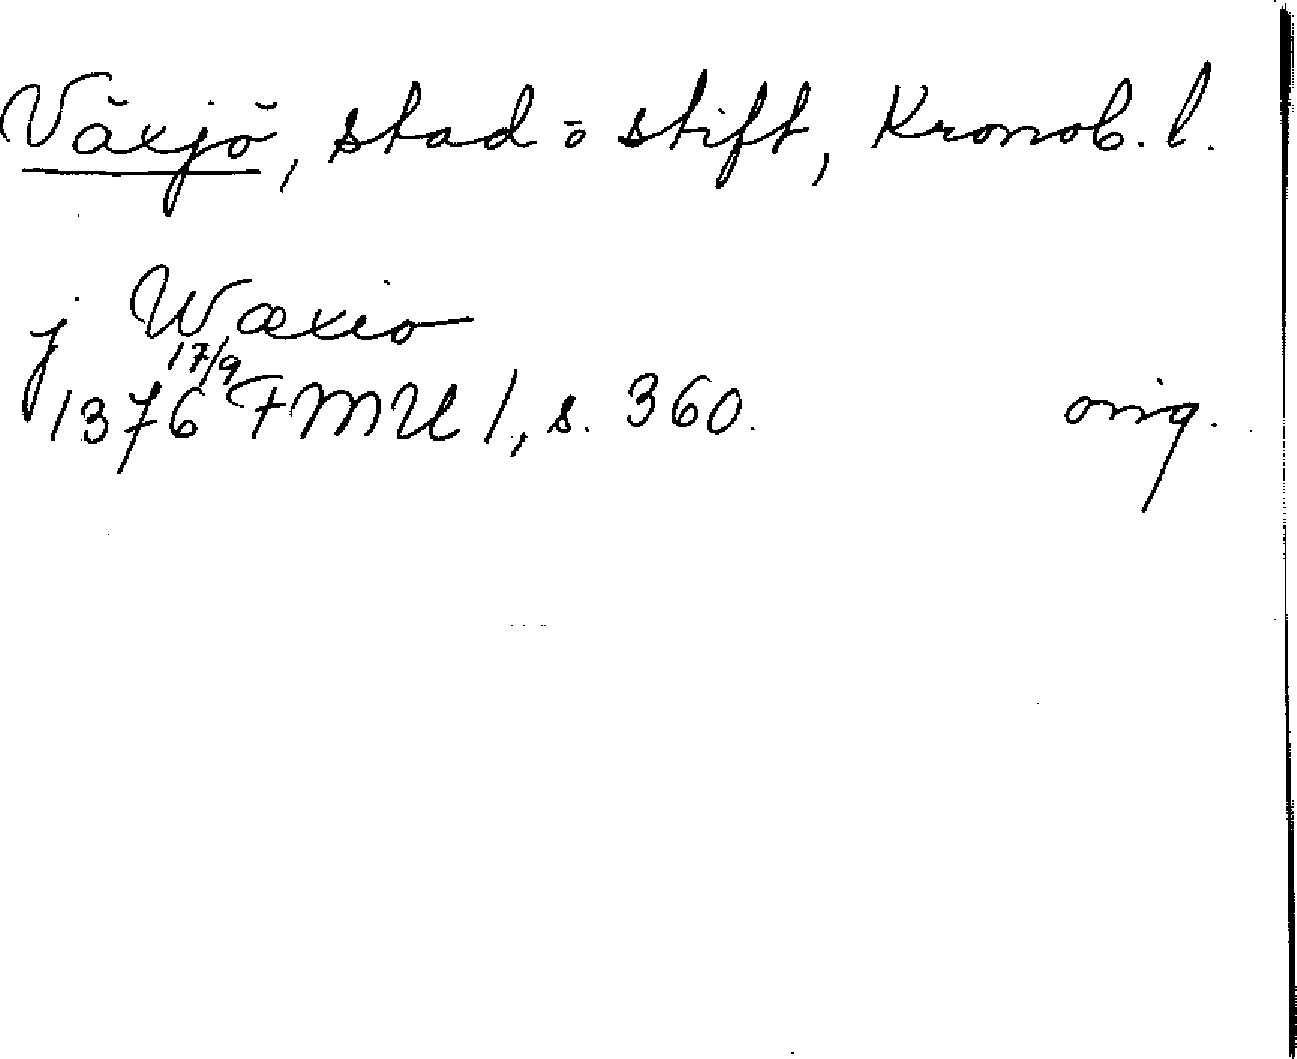 Växjö, stad ō stift, Kronob. l.
j Wæxio
1376 17/9 FMU 1, s. 360. orig.